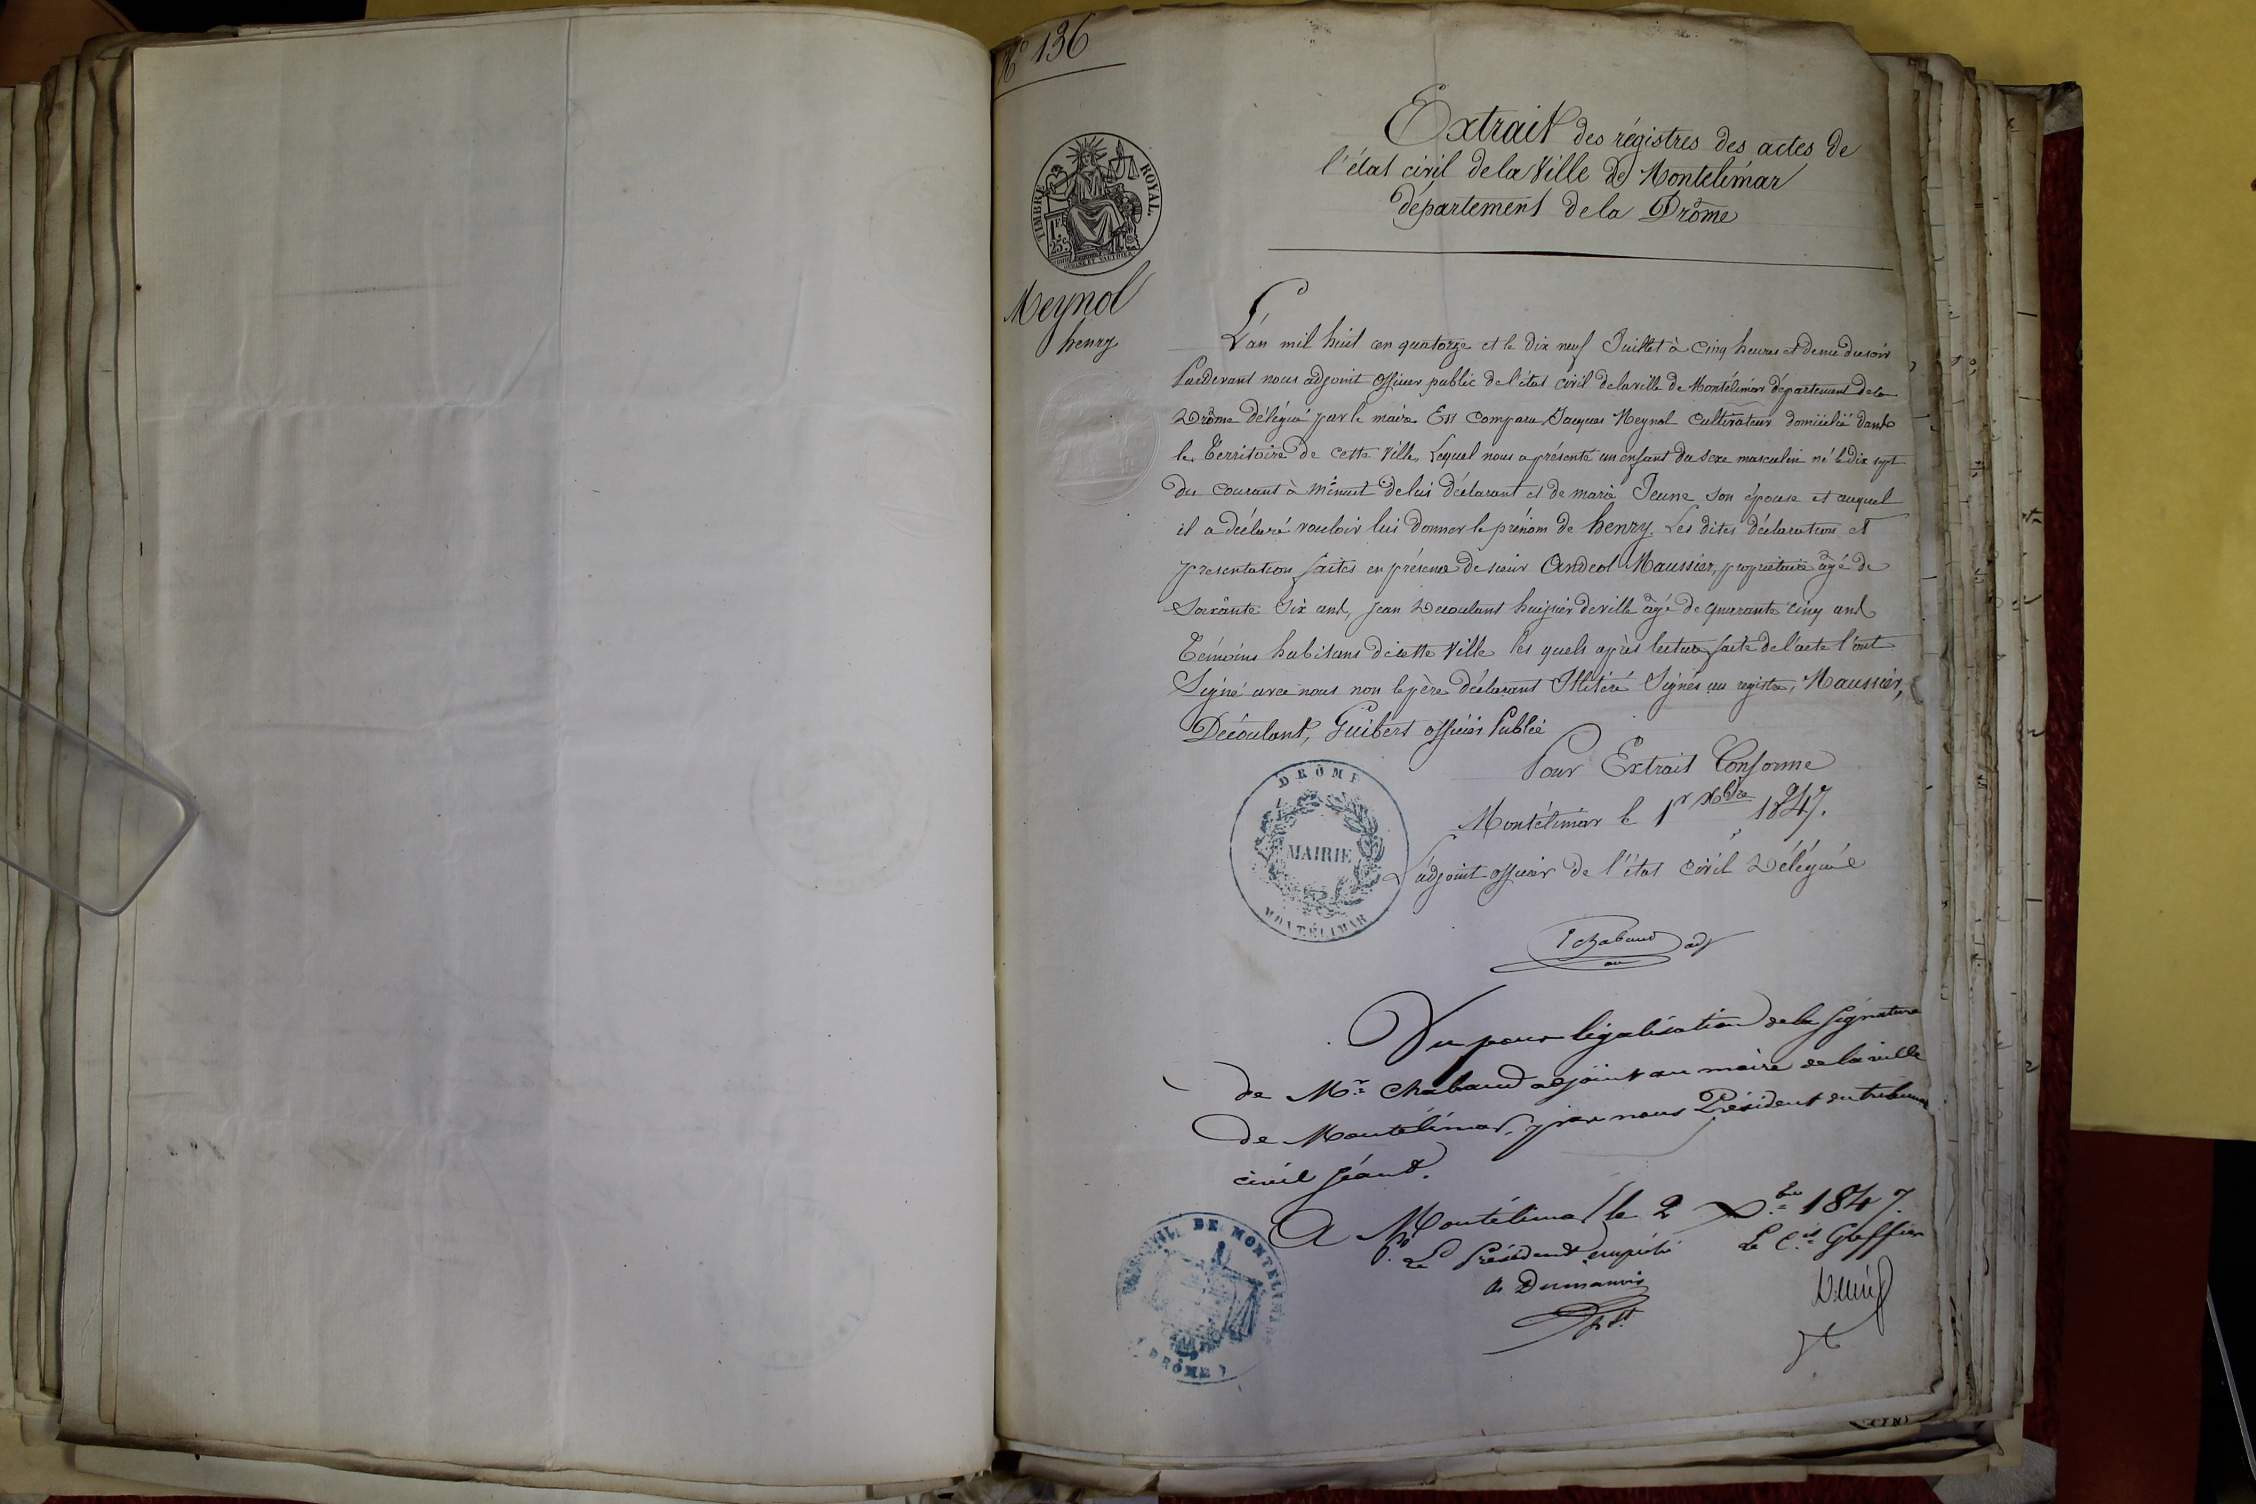 N° 136
TIMBRE ROYAL.
1F.
25c.
Extrait des régistres des actes de
l'état civil de la Ville de Montelimar
département de la Drôme
Meynol
henry
L'an mil huit cen quatorze et le dix neuf Juillet à Cinq heures et demie du soir
Pardevant nous adjoint officier public de l'état civil de la ville de Montélimar département de la
Drôme délégué par le maire Est Comparu Jacques Meynol Cultivateur domicilié dans
le Territoire de cette Ville, Lequel nous a présenté un enfant du sexe masculin né le dix sept
du courant à minuit de lui déclarant et de marie Jeune son épouse et auquel
il a déclaré vouloir lui donner le prénom de henry. Les dites déclaration et
presentation faites en présence de sieur Andeol Maussier, propriétaire âgé de
Soixante Six ans, Jean Decoulant huissier de ville âgé de quarante cinq ans
Témoins habitans de cette Ville les quels après lecture faite de l'acte l'ont
Signé avec nous non le père déclarant Illitéré Signés au registre, Maussier,
Découlant, Guibert officier Public
Pour Extrait Conforme
Montélimar le 1r Xbre 1847.
L'adjoint officier de l'état civil Délégué
DRÔME
MAIRIE
MONTÉLIMAR
Chabaud adj
Vu pour légalisation de la signature
de Mr. Chabaud adjoint au maire de la ville
de Montélimar, par nous Président du tribunal
civil séant.
A Montélimar le 2 Xbre 1847.
Pr Le Président empêché Le Cis Greffier
DE MONTELIMAR
(DRÔME)